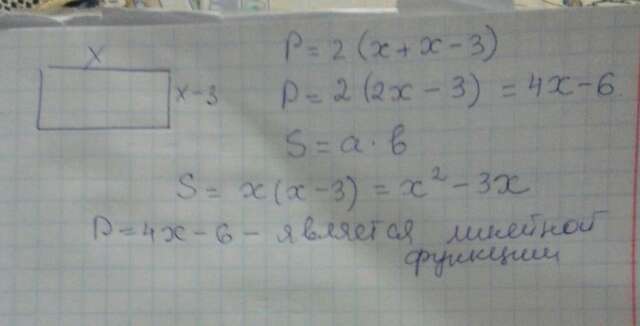 x
x-3
P = 2 (x + x - 3)
P = 2 (2x - 3) = 4x - 6.
S = a · b
S = x(x - 3) = x² - 3x
P = 4x - 6 - является линейной
функции